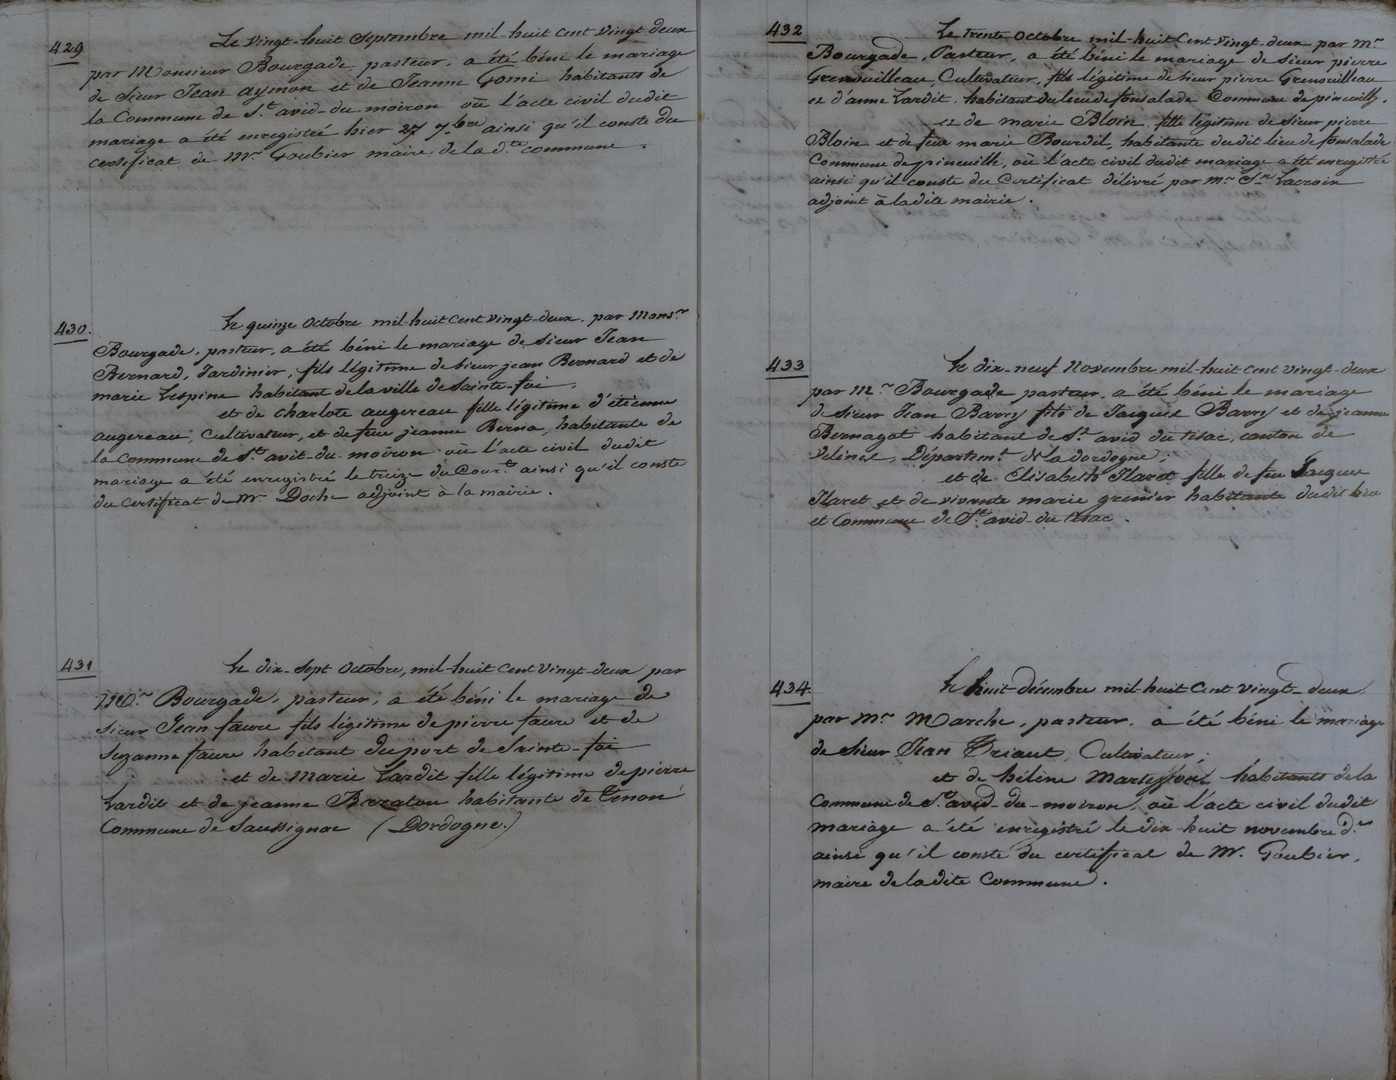 429
Le Vingt-huit Septembre mil huit Cent Vingt deux
par Monsieur Bourgade, pasteur, a été béni le mariage
de Sieur Jean aymon et de Jeanne Gomi habitants de
la Commune de St. avid-du moiron où l'acte civil dudit
mariage a été enregistré hier 27 7.bre ainsi qu'il conste du
certificat de Mr. Goubier maire de la d.te commune.
430.
Le quinze Octobre mil-huit Cent Vingt-deux, par Monsr.
Bourgade, pasteur, a été béni le mariage de Sieur Jean
Bernard, Jardinier, fils légitime de Sieur jean Bernard et de
marie Lespine habitant de la ville de Sainte-foi,
et de Charlote augereau fille légitime d'étienne
augereau, Cultivateur, et de feue jeanne Berna, habitante de
la Commune de St. avit-du-moiron où l'acte civil dudit
mariage a été enregistré le treize du Cour.t ainsi qu'il conste
du certificat de Mr. Doche adjoint à la mairie.
431
Le dix-Sept Octobre, mil-huit Cent Vingt-deux par
Mr. Bourgade, pasteur, a été béni le mariage de
Sieur Jean faure fils légitime de pierre faure et de
Suzanne faure habitant du port de Sainte-foi
et de Marie Lardit fille légitime de pierre
Lardit et de jeanne habitante de
Commune de Saussignac (Dordogne.)
432
Le trente Octobre mil-huit Cent Vingt-deux par Mr.
Bourgade, Pasteur, a été béni le mariage de Sieur pierre
Grenouilleau, Cultivateur, fils légitime de Sieur pierre Grenouilleau
et d'anne Lardit, habitant du lieu de fonsalade Commune de pineuilh,
et de marie Bloin fille légitime de Sieur pierre
Bloin et de feue marie Bourdil, habitante dudit lieu de fonsalade
Commune de pineuilh, où l'acte civil dudit mariage a été enregistré
ainsi qu'il conste du Certificat délivré par Mr. Lacroix
adjoint à la dite mairie.
433
Le dix-neuf Novembre mil-huit Cent Vingt-deux
par Mr. Bourgade pasteur, a été béni le mariage
de Sieur Jean Barry fils de Jacques Barry et de jeanne
Bernagot habitant de St. avid du tisac, canton de
Velines, Départemt. de la Dordogne;
et de Elisabeth Flaret fille de feu Jacques
Flaret et de vivante marie grenier habitante dudit lieu
et Commune de St. avid-du tisac.
434
Le huit décembre mil huit Cent Vingt-deux
par Mr. Marche, pasteur, a été béni le mariage
de Sieur Jean Triaut, Cultivateur,
et de hélène habitants de la
Commune de St. avid-du-moiron, où l'acte civil dudit
mariage a été enregistré le dix huit novembre d.er
ainsi qu'il conste du certificat de Mr. Goubier,
maire de la dite Commune.